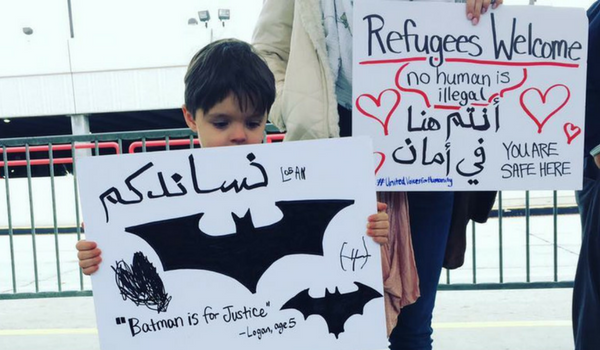 نساندكم
LOGAN
(-4-)
"Batman is for Justice"
- Logan, age 5
Refugees Welcome
no human is
illegal
أنتم هنا
في أمان
YOU ARE
SAFE HERE